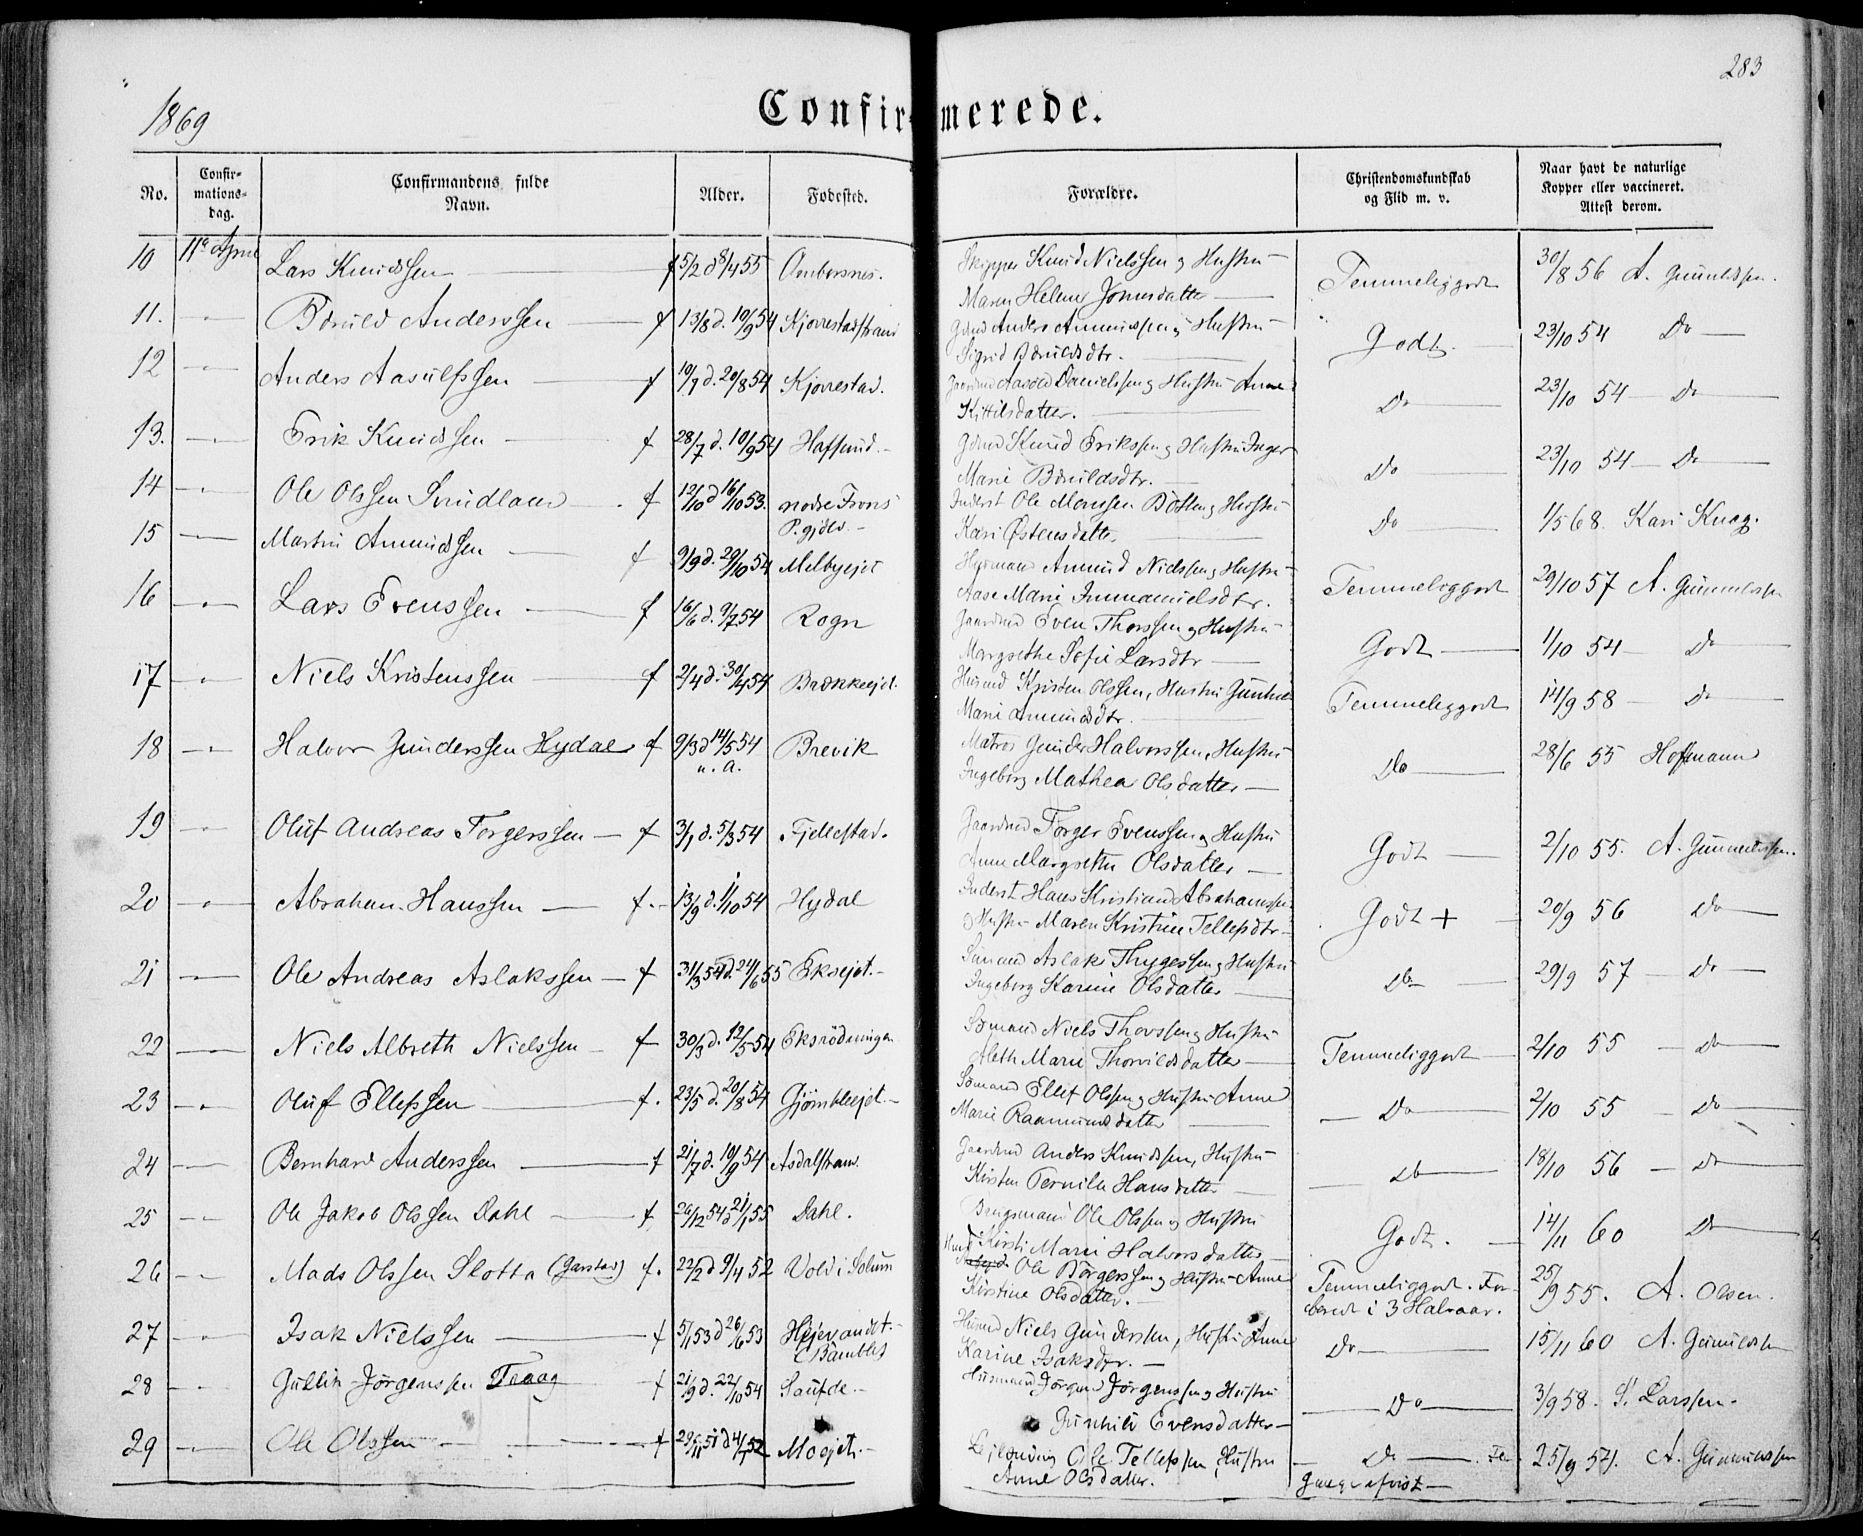 283
1869
Confirmerede.
No. Confirmationsdag. Confirmandens fulde Navn. Alder. Fødested. Forældre. Christendomskundskab og Flid m. v. Naar havt de naturlige Kopper eller vaccineret. Attest derom.
10 11te April Lars Knudssen f 5/2 d 8/4 55 Skipper Knud Nielssen og Hustru Maren Helene Temmeliggodt 30/8 56 A. Gunnildsen.
11. Børuld Anderssen f 13/8 d. 10/9 54 Kjørrestadstrand Anders Amundssen og Hustru Sigrid Børuldsdtr. Godt 23/10 54 Do
12 Anders Aasulfssen f d. 20/8 54 Kjørrestad. Danielssen og Hustru Anne Kittilsdatter. Do 23/10 54 Do
13. Erik Knudssen f 28/7 d. 10/9 54 Hafsund. Knud Erikssen og Hustru Inger Marie Børuldsdtr. Do 23/10 54 Do
14 Ole Olssen f 12/10 d 16/10 53. nordre Frons P.gjeld. Inderst Ole Monssen og Hustru Kari Østensdatter Do 1/5 68. Kari Knag.
15 Martin Amundssen f 9/9 d. 29/10 54 Melbyejet Amund Nielssen og Hustru Aase Marie Immanuelsdtr. Temmeliggodt 29/10 57 A. Gunnildsen
16 Lars Evenssen f 16/6 d. 9/7 54 Rogn Gaardmd Even Thorssen og Hustru Margrethe Sofie Larsdtr Godt 1/10 54 Do
17 Niels Kristenssen f 2/4 d. 30/4 54 Brækkeejet. Husmd Kristen Olssen, Hustru Gunhild Marie Amundsdtr. Temmeliggodt 14/9 58 Do
18 Halvor Gunderssen Hydal f 9/3 d 14/5 54 u. a. Brevik Matros Gunder Halvorssen, Hustru Ingeborg Mathea Olsdatter Do 28/6 55 Hoffmann
19 Oluf Andreas Torgerssen f 3/1 d. 5/3 54 Fjellestad. Gaardmd Torger Evenssen og Hustru Anne Margrethe Olsdatter Godt 2/10 55. A. Gunnildsen.
20 Abraham Hanssen f. 13/9 d. 1/10 54 Hydal Inderst Hans Kristian Abrahamssen og Hustru Maren Kristine Tellefsdtr Godt + 20/9 56 Do
21 Ole Andreas Aslakssen f 31/3 54 d. 24/6 55 Ekseejet. Sømand Aslak Thygessen og Hustru Ingeborg Karine Olsdatter Do 29/9 57 Do
22 Niels Albreth Nielssen f 30/3 d. 12/5 54 Eksrödningen Sømand Niels Thorssen og Hustru Aleth Marie Thorvildsdatter Temmeliggodt 2/10 55 Do
23 Oluf Ellefssen f. 23/5 d. 20/8 54 Sømand Ellef Olssen og Hustru Anne Marie Raamundsdatter Do 2/10 55 Do
24 Bernhard Anderssen f 21/7 d. 10/9 54 Asdalstrand. Gaardmd Anders Knudssen, Hustru Kirsten Pernille Hansdatter Do 18/10 56 Do
25 Ole Jakob Olssen Dahl f. 26/12 54 d 21/1 55 Dahl. Brugsmand Ole Olssen og Hustru Kirsti Marie Halvorsdatter Godt. 14/11 60 Do
26 Mads Olssen Slotta (Garstad) f. 22/2 d 9/4 52 Vold i Solum Ole Börgerssen og Hustru Anne Kirstine Olsdatter. Temmeliggodt. Forberedt i 3 Halvaar. 25/9 55. A. Olsen.
27 Isak Nielssen f 5/1 53 d 26/6 53 (Bamble) Husmd Niels Gunderssen, Hustru Anne Karine Isaksdtr. Do 15/11 60 A. Gunnildsen
28 Gullik Jørgenssen Traag f 21/9 d. 22/10 54 Saufde. Husmand Jørgen Jørgenssen og Hustru Gunhild Evensdatter Do 3/9 58. S. Larssen.
29 Ole Olssen f 29/11 51 d 4/7 52 Moejet. Ole Tellefssen, Hustru Anne Olsdatter. Do 25/9 57. A. Gunnildsen